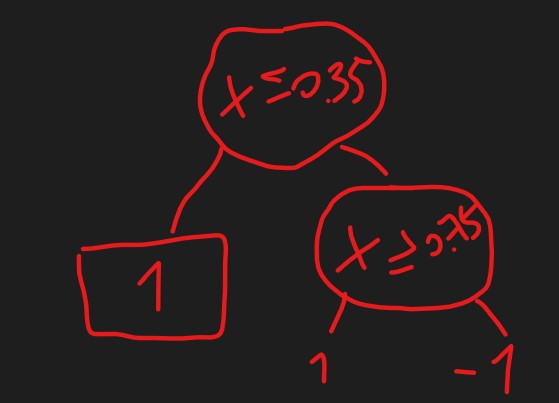 x ≤ 0.35
1
x ≥ 0.75
1
-1